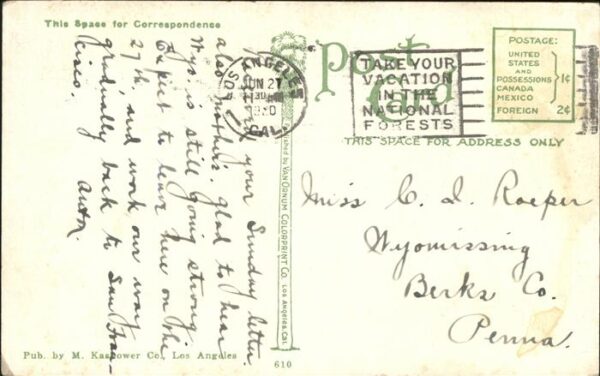 This Space for Correspondence
your Sunday letter.
also mother's. Glad to hear
Wyo. is still going strong.
Expect to leave here on the
27th. and work our way
gradually back to San Fran-
cisco.
Post
Card
LOS ANGELES
JUN 27
1920
CAL.
TAKE YOUR
VACATION
IN THE
NATIONAL
FORESTS
POSTAGE:
UNITED
STATES
AND
POSSESSIONS
CANADA
MEXICO
1¢
FOREIGN 2¢
THIS SPACE FOR ADDRESS ONLY
Miss C. I. Roeper
Wyomissing
Berks Co.
Penna.
by VAN ORNUM COLORPRINT CO. LOS ANGELES, CAL.
Pub. by M. Kashower Co., Los Angeles
610